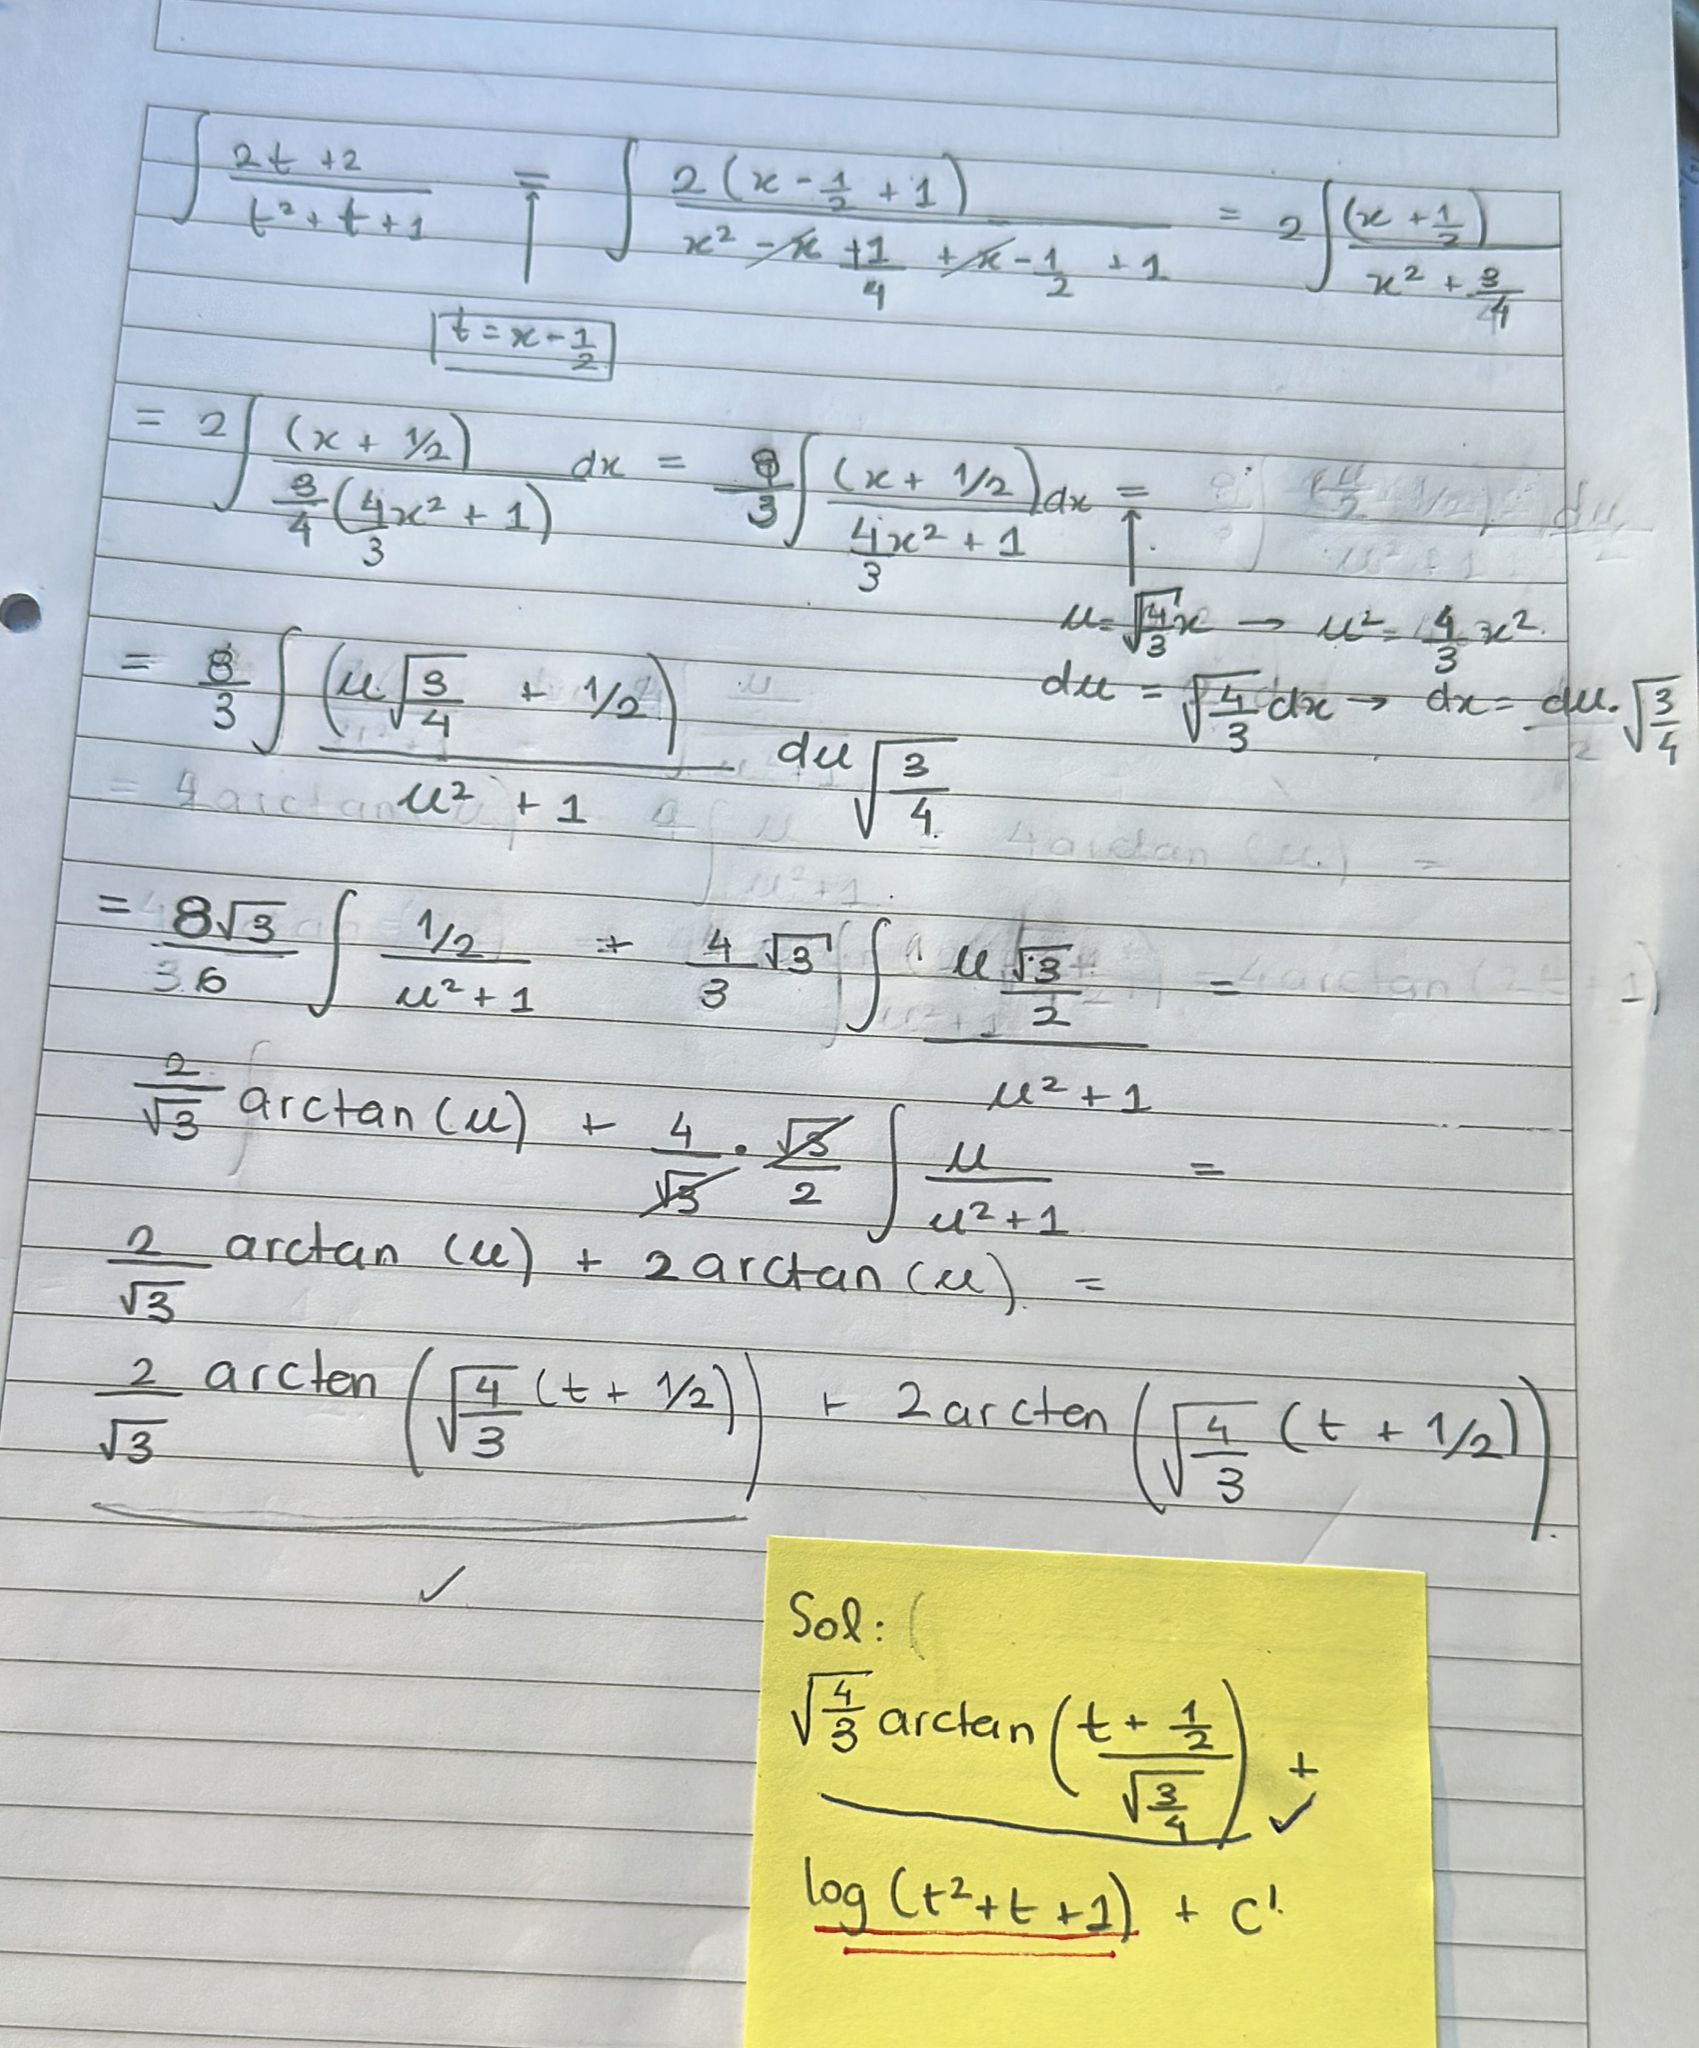 ∫ (2t + 2)/(t² + t + 1) = ∫ 2(x - 1/2 + 1)/(x² - x + 1/4 + x - 1/2 + 1) = 2 ∫ (x + 1/2)/(x² + 3/4)
t = x - 1/2
= 2 ∫ (x + 1/2)/(3/4 (4/3 x² + 1)) dx = 8/3 ∫ (x + 1/2)/(4/3 x² + 1) dx =
u = √(4/3) x → u² = 4/3 x²
du = √(4/3) dx → dx = du · √(3/4)
= 8/3 ∫ (u √(3/4) + 1/2)/(u² + 1) du √(3/4)
= 8√3/6 ∫ (1/2)/(u² + 1) + 4/3 √3 ∫ (u √3/2)/(u² + 1) =
2/√3 arctan(u) + 4/√3 · √3/2 ∫ u/(u² + 1) =
2/√3 arctan(u) + 2 arctan(u) =
2/√3 arctan(√(4/3) (t + 1/2)) + 2 arctan(√(4/3) (t + 1/2))
✓
Sol:
√(4/3) arctan((t + 1/2)/√(3/4)) + ✓
log(t² + t + 1) + C